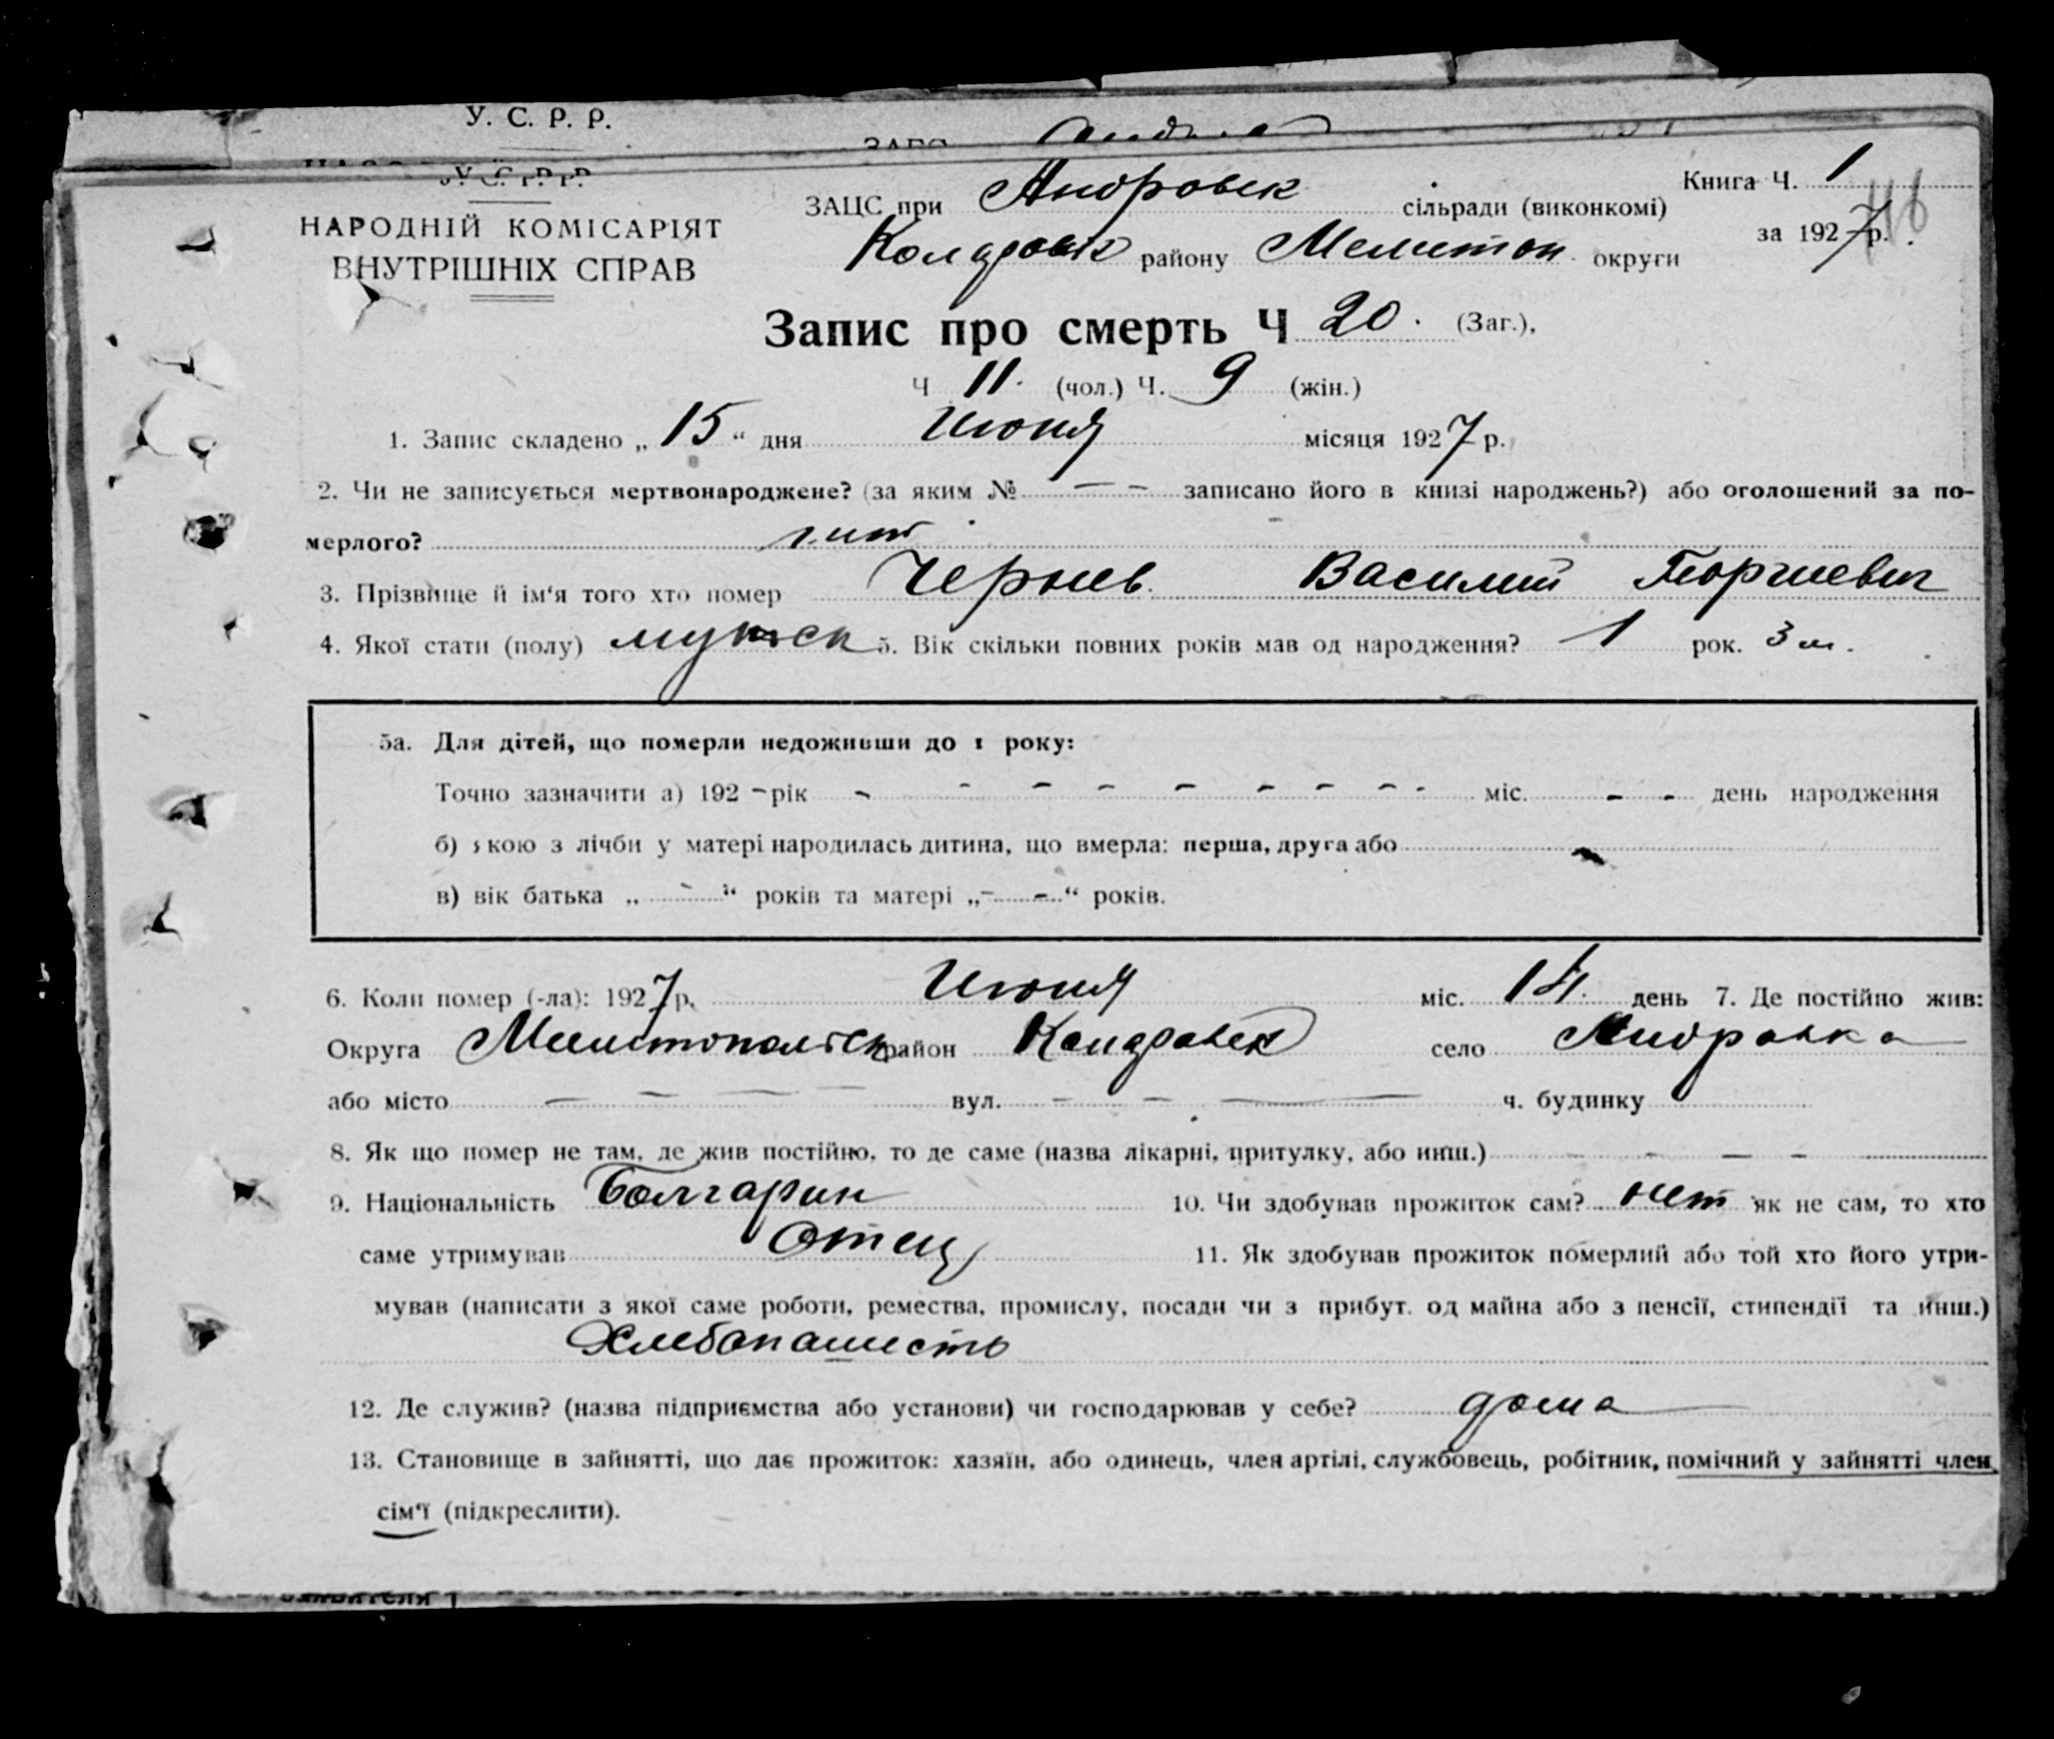 У. С. Р. Р.
У. С. Р. Р.
НАРОДНІЙ КОМІСАРІЯТ
ВНУТРІШНІХ СПРАВ
Книга Ч. 1
за 1927 р.
ЗАЦС при Андровск сільради (виконкомі)
району Мелитоп. округи
Запис про смерть Ч 20. (Заг.),
Ч 11. (чол.) Ч. 9 (жін.)
1. Запис складено „ 15 “ дня Июня місяця 1927 р.
2. Чи не записується мертвонароджене? (за яким № — — записано його в книзі народжень?) або оголошений за по-
мерлого? нет
3. Прізвище й ім‘я того хто помер Чернев. Василий Георгиевич
4. Якої стати (полу) мужск 5. Вік скільки повних років мав од народження? 1 рок. 3 м.
5а. Для дітей, що померли недоживши до 1 року:
Точно зазначити а) 192 - рік - - - - - - - - - міс. - - день народження
б) якою з лічби у матері народилась дитина, що вмерла: перша, друга або -
в) вік батька „ - “ років та матері „ - - “ років.
6. Коли помер (-ла): 1927 р. Июня міс. 14. день 7. Де постійно жив:
Округа Мелитопольск район село Андровка
або місто — — — вул. — — — ч. будинку
8. Як що помер не там, де жив постійно, то де саме (назва лікарні, притулку, або инш.) - - — -
9. Національність Болгарин 10. Чи здобував прожиток сам? нет як не сам, то хто
саме утримував Отец 11. Як здобував прожиток померлий або той хто його утри-
мував (написати з якої саме роботи, ремества, промислу, посади чи з прибут. од майна або з пенсії, стипендії та инш.)
Хлебопашесть
12. Де служив? (назва підприємства або установи) чи господарював у себе? дома
13. Становище в зайнятті, що дає прожиток: хазяїн, або одинець, член артілі, службовець, робітник, помічний у зайнятті член
сім‘ї (підкреслити).